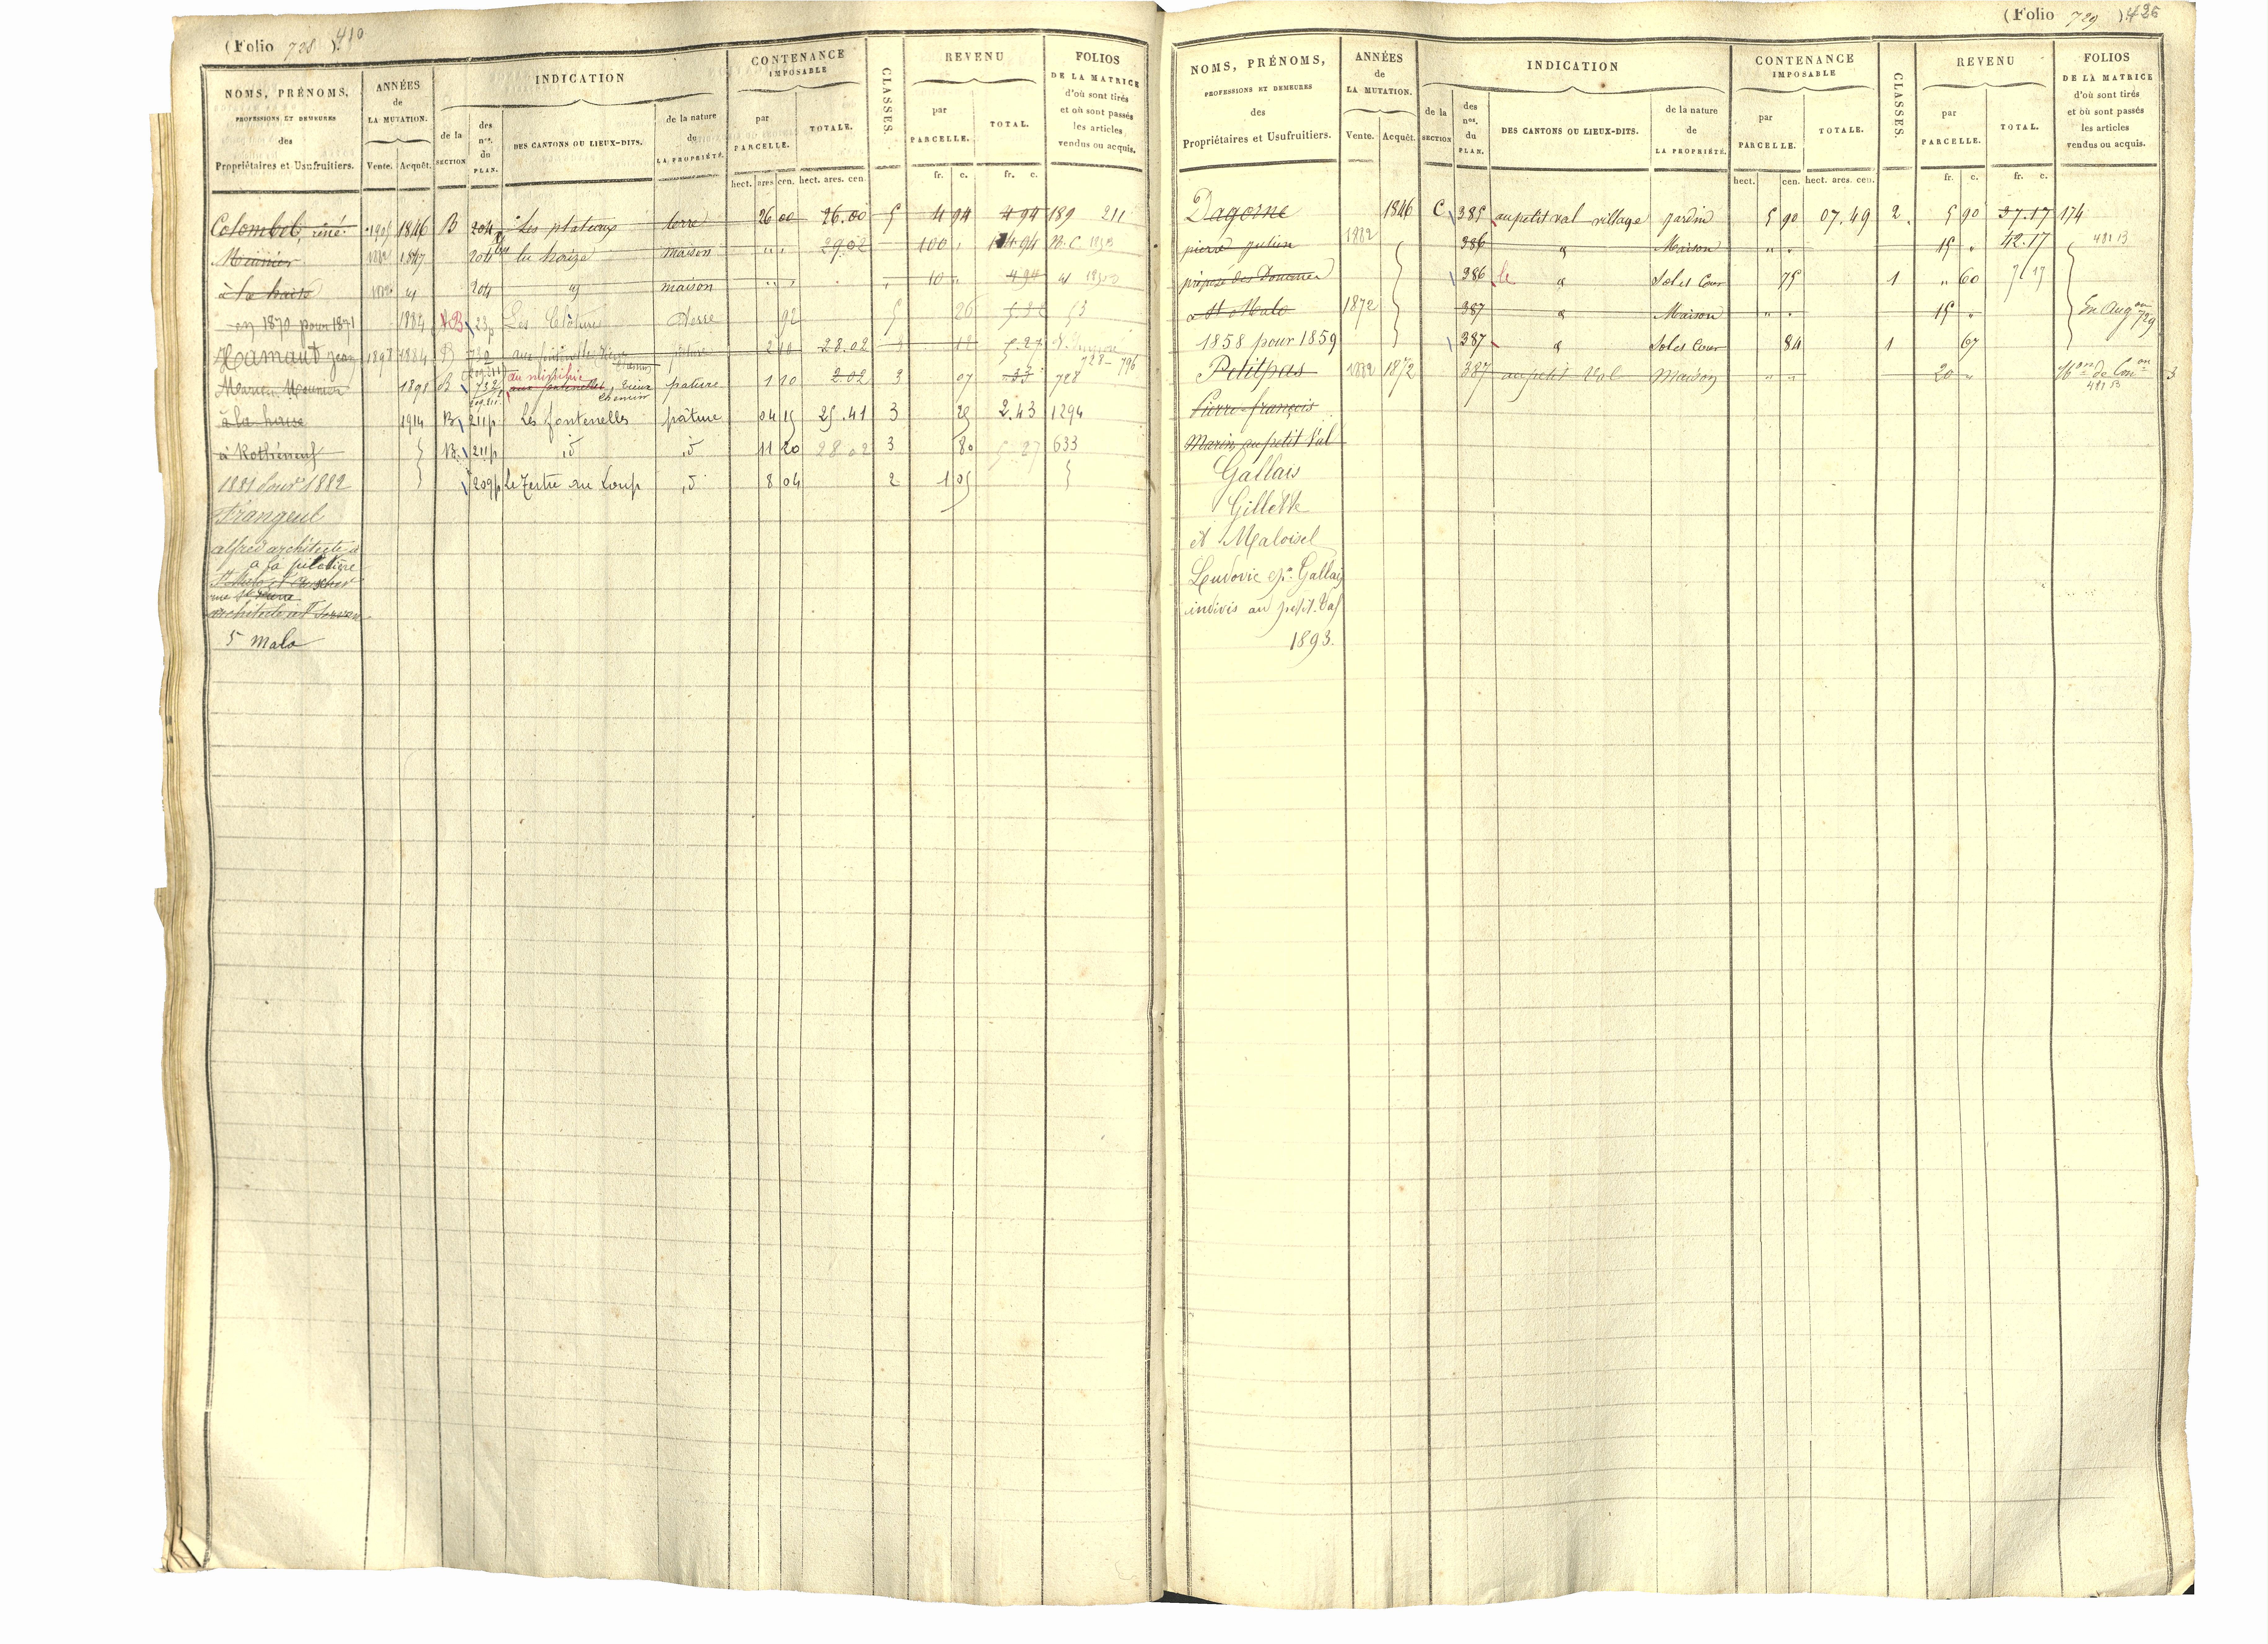 (Folio 728 ) 410
NOMS, PRÉNOMS,
PROFESSIONS ET DEMEURES
des
Propriétaires et Usufruitiers.
ANNÉES
de
LA MUTATION.
Vente. Acquêt.
INDICATION
de la
SECTION
des
nos.
du
PLAN.
DES CANTONS OU LIEUX-DITS.
de la nature
du
LA PROPRIÉTÉ.
CONTENANCE
IMPOSABLE
par
PARCELLE.
TOTALE.
hect. ares cen. hect. ares. cen.
CLASSES.
REVENU
par
PARCELLE.
TOTAL.
fr. c. fr. c.
FOLIOS
DE LA MATRICE
d'où sont tirés
et où sont passés
les articles
vendus ou acquis.
Colombel, réné 1905 1846 B 204 Les plateaux terre 26 00 26.00 5 4 94 4 94 189 211
Meunier 1847 204 maison " " 29 02 100 " 4 94 N.C.
à la haise 204 maison " " 10 " 4 94
en 1870 pour 1871 1884 B 23p Les Clôtures Terre 92 5 26 53
Hamaut Jean 1898 1884 B 732 pature 2 10 28.02 5.27
728 - 796
Meunier 1891 B 732 vieux chemin pature 1 10 2.02 3 07 33 728
à la haise 1914 B 211p Les fontenelles pâture 04 15 25.41 3 29 2.43 1294
à Rothéneuf B 211p id id 11 20 28.02 3 80 5 27 633
1881 pour 1882 209p Le Tertre au Loup id 8 04 2 1 05
Frangeul
alfred architecte à
à la piletière
rue St Pierre
architecte à St Servan
St Malo
(Folio 729 ) 426
NOMS, PRÉNOMS,
PROFESSIONS ET DEMEURES
des
Propriétaires et Usufruitiers.
ANNÉES
de
LA MUTATION.
Vente. Acquêt.
INDICATION
de la
SECTION
des
nos.
du
PLAN.
DES CANTONS OU LIEUX-DITS.
de la nature
de
LA PROPRIÉTÉ.
CONTENANCE
IMPOSABLE
par
PARCELLE.
TOTALE.
hect. cen. hect. ares. cen.
CLASSES.
REVENU
par
PARCELLE.
TOTAL.
fr. c. fr. c.
FOLIOS
DE LA MATRICE
d'où sont tirés
et où sont passés
les articles
vendus ou acquis.
Dagorne 1846 C 385 au petit val village jardin 5 90 07.49 2 5 90 37.17 174
pierre julien 1882 386 " Maison " " 15 " 42.17 481 B
préposé des Douanes 386 le " Sol et Cour 75 1 " 60 7 17
à St Malo 1872 387 " Maison " " 15 " En Augon 729
1858 pour 1859 387 " Sol et Cour 84 1 67
Petitpas 1882 1872 387 au petit Val Maison " " 20 " de Con 3
481 B
Pierre françois
Marin au petit Val
Gallais
Gillette
et Maloisel
Ludovic ép. Gallais
indivis au petit-Val
1893.